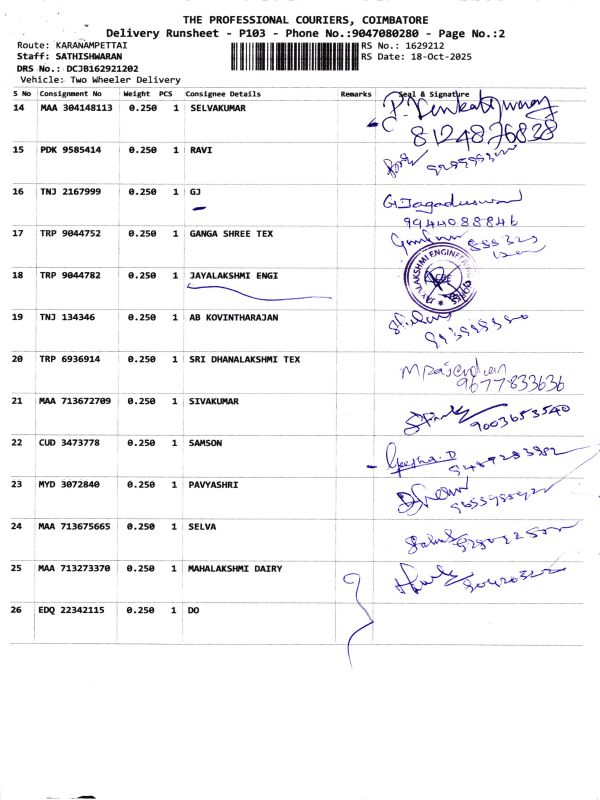 THE PROFESSIONAL COURIERS, COIMBATORE
Delivery Runsheet - P103 - Phone No.:9047080280 - Page No.:2
Route: KARANAMPETTAI RS No.: 1629212
Staff: SATHISHWARAN RS Date: 18-Oct-2025
DRS No.: DCJB162921202
Vehicle: Two Wheeler Delivery
S No Consignment No Weight PCS Consignee Details Remarks Seal & Signature
14 MAA 304148113 0.250 1 SELVAKUMAR
8124876838
15 PDK 9585414 0.250 1 RAVI
16 TNJ 2167999 0.250 1 GJ
9944088846
17 TRP 9044752 0.250 1 GANGA SHREE TEX
18 TRP 9044782 0.250 1 JAYALAKSHMI ENGI
19 TNJ 134346 0.250 1 AB KOVINTHARAJAN
20 TRP 6936914 0.250 1 SRI DHANALAKSHMI TEX
9677833636
21 MAA 713672709 0.250 1 SIVAKUMAR 9003653540
22 CUD 3473778 0.250 1 SAMSON
23 MYD 3072840 0.250 1 PAVYASHRI
24 MAA 713675665 0.250 1 SELVA
25 MAA 713273370 0.250 1 MAHALAKSHMI DAIRY
26 EDQ 22342115 0.250 1 DO